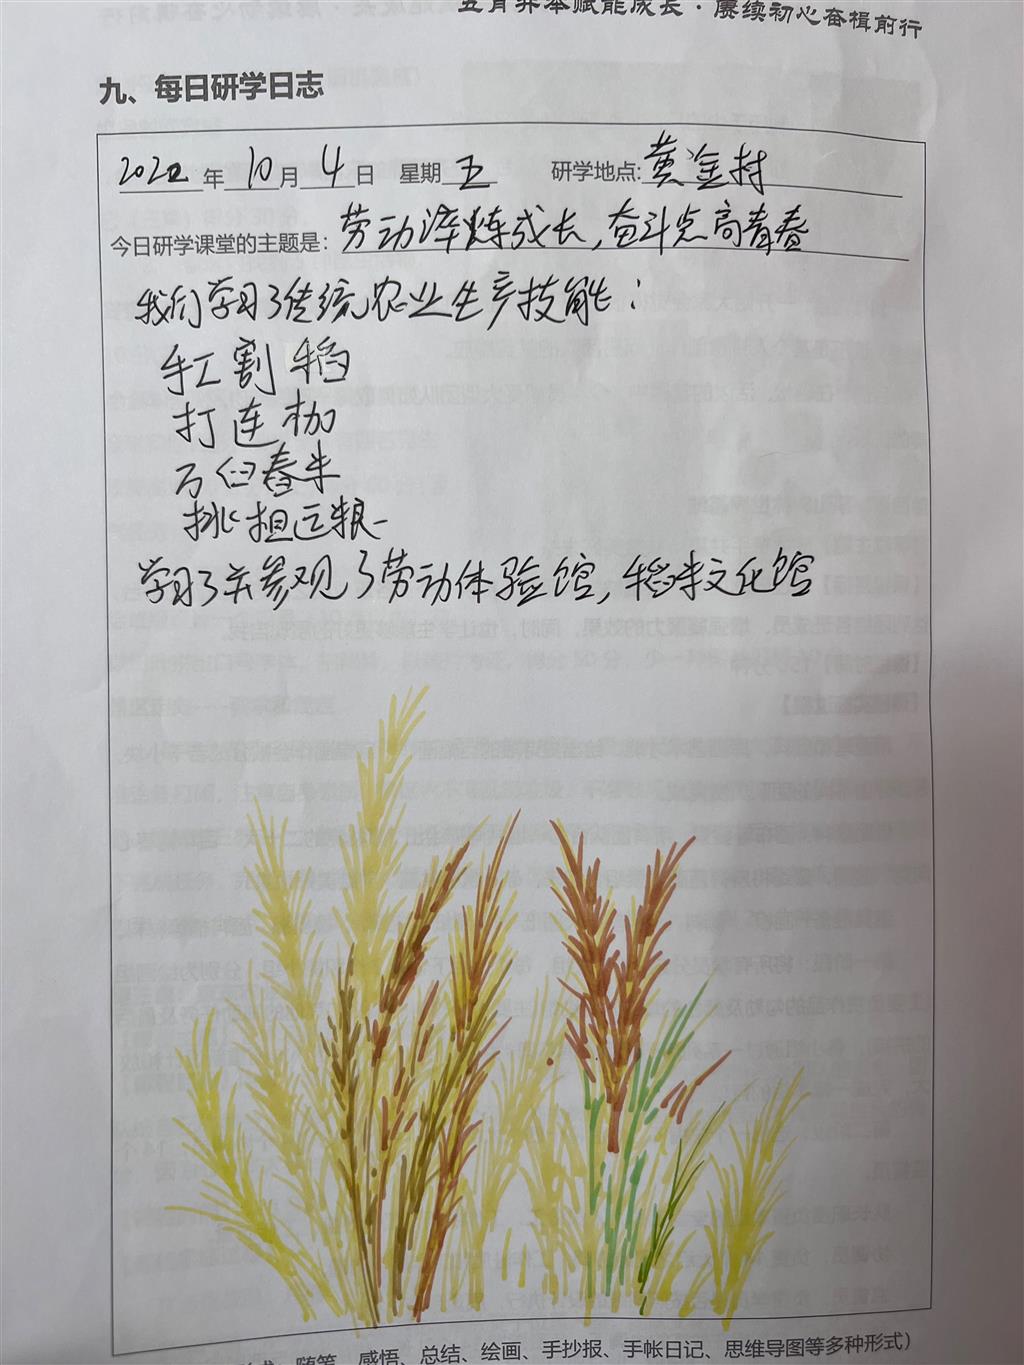 五育并举赋能成长·赓续初心奋楫前行
九、每日研学日志
2022年10月4日 星期五 研学地点:黄金村
今日研学课堂的主题是:劳动淬炼成长,奋斗点亮青春
我们学习了传统农业生产技能:
手工割稻
打连枷
石臼舂米
挑担运粮
学习了并参观了劳动体验馆,稻米文化馆
随笔、感悟、总结、绘画、手抄报、手帐日记、思维导图等多种形式)